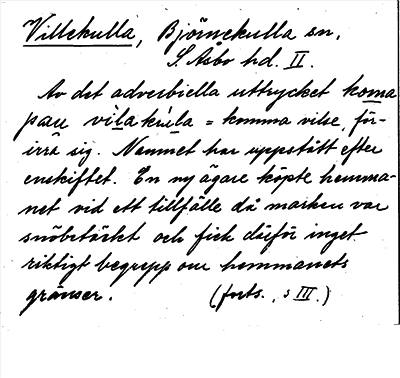 Villekulla, Björnekulla sn,
S. Åsbo hd. II.
Av det adverbiella uttrycket koma
pau vilakula = komma vilse, för-
irra sig. Namnet har uppstått efter
enskiftet. En ny ägare köpte hemma-
net vid ett tillfälle då marken var
snöbetäckt och fick därför inget
riktigt begrepp om hemmanets
gränser. (forts., s III.)